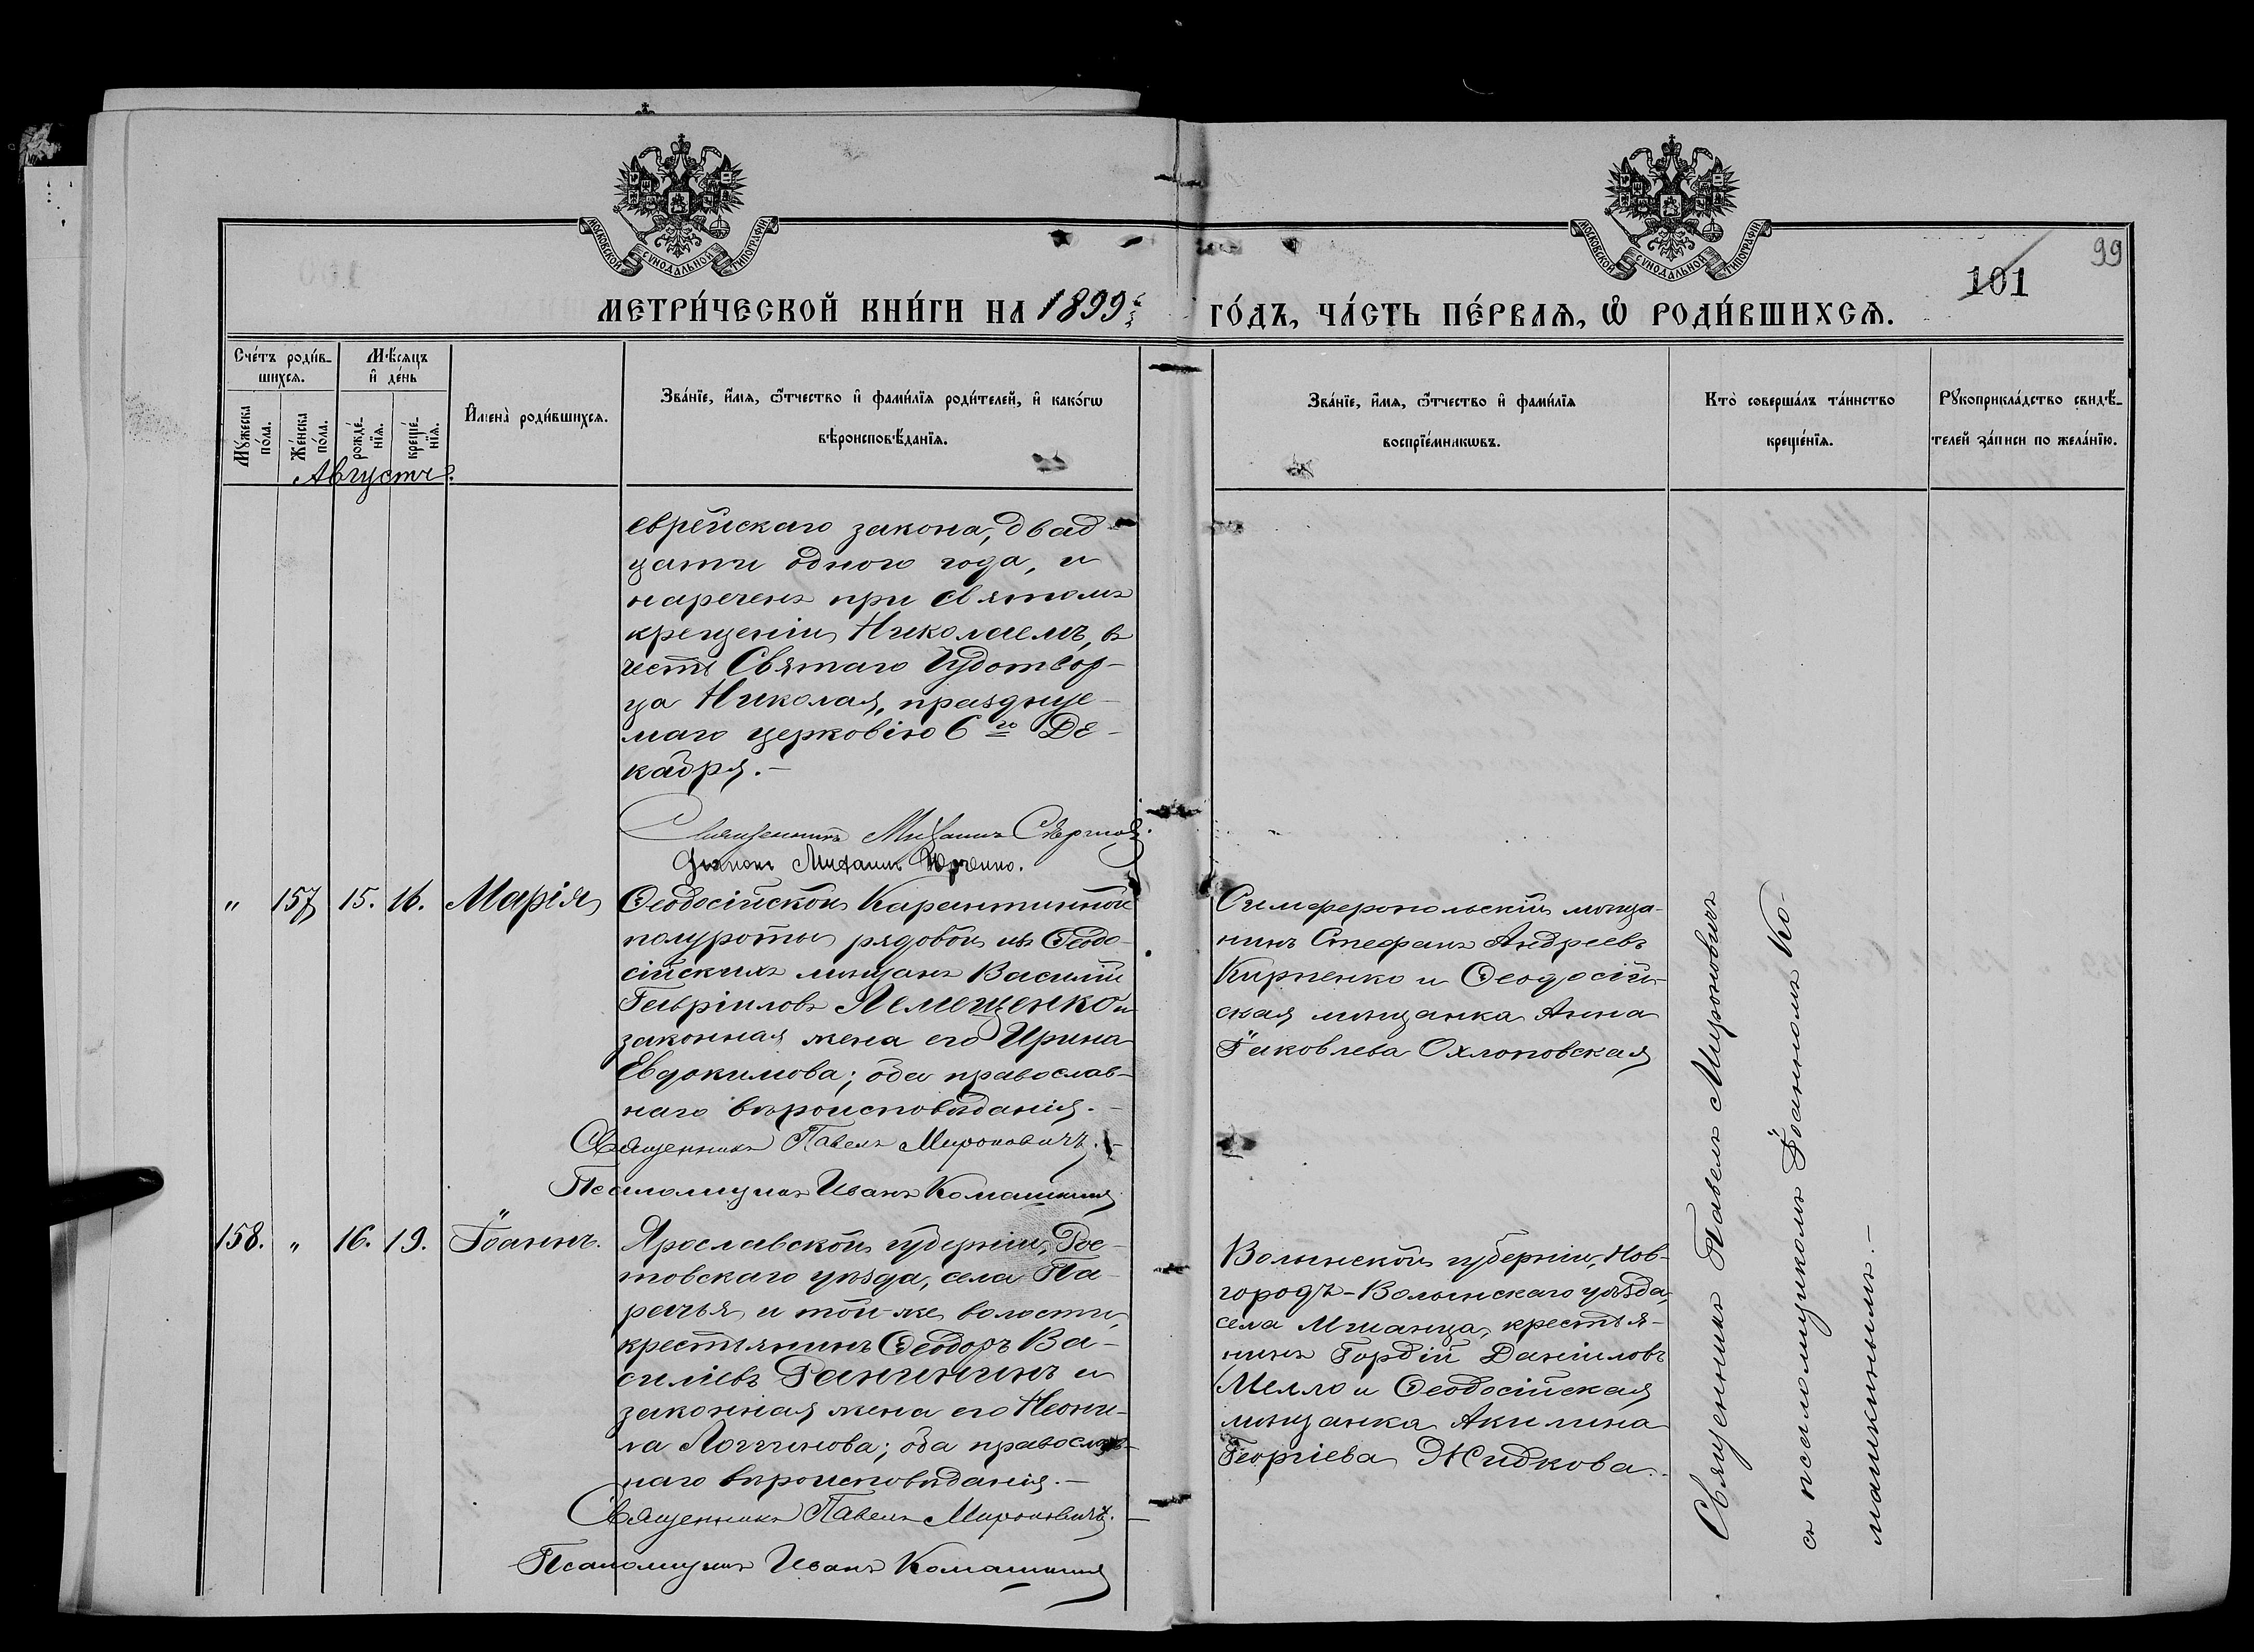 МОСКОВСКОЙ СѴНОДАЛЬНОЙ ТИПОГРАФІИ
МОСКОВСКОЙ СѴНОДАЛЬНОЙ ТИПОГРАФІИ
99
101
МЕТРИ́ЧЕСКОЙ КНИ́ГИ НА 1899й
ГО́ДЪ, ЧА́СТЬ ПЕ́РВАѦ, Ѽ РОДИ́ВШИХСѦ.
Сче́тъ роди́в-
шихсѧ.
Мꙋ́жеска
по́ла.
Же́нска
по́ла.
Мѣ́сяцъ
и҆ де́нь
рожде́-
нїѧ.
креще́-
нїѧ.
И҆мена̀ роди́вшихсѧ.
Зва́нїе, и҆́мѧ, ѻ҆́тчество и҆ фами́лїѧ роди́телей, и҆ како́гѡ
вѣроисповѣ́данїѧ.
Зва́нїе, и҆́мѧ, ѻ҆́тчество и҆ фами́лїѧ
воспрїе́мникѡвъ.
Кто̀ соверша́лъ та́инство
креще́нїѧ.
Рꙋкоприкла́дство свидѣ́-
телей за́писи по жела́нїю.
Августъ.
еврейскаго закона, двад-
цати одного года, и
нареченъ при святомъ
крещеніи Николаемъ, въ
честь Святаго Чудотвор-
ца Николая, празднуе-
маго церковію 6го Де-
кабря.—
Священникъ Михаилъ
Діаконъ Михаилъ Юрченко.
" 157 15. 16. Марія
Ѳеодосійской Карантинной
полуроты рядовой изъ Ѳеодо-
сійскихъ мѣщанъ Василій
Гавріиловъ Лемещенко и
законная жена его Ирина
Евдокимова; оба православ-
наго вѣроисповѣданія.—
Священникъ Павелъ Мироновичъ.—
Псаломщикъ Иванъ Комашкинъ
Симферопольскій мѣща-
нинъ Стефанъ Андреевъ
Кирпенко и Ѳеодосій-
ская мѣщанка Анна
Іаковлева Охлоповская
158. " 16. 19. Іоаннъ.
Ярославской губерніи, Рос-
товскаго уѣзда, села По-
рѣчья и той-же волости,
крестьянинъ Ѳеодоръ Ва-
силіевъ Ранинъ и
законная жена его Неони-
ла Логгинова; оба православ-
наго вѣроисповѣданія.—
Священникъ Павелъ Мироновичъ.—
Псаломщикъ Иванъ Комашкинъ
Волынской губерніи, Нов-
городъ-Волынскаго уѣзда,
села Мшанца, крестья-
нинъ Гордій Даніиловъ
Мелло и Ѳеодосійская
мѣщанка Акилина
Георгіева Жидкова.
Священникъ Павелъ Мироновичъ
съ псаломщикомъ Іоанномъ Ко-
машкинымъ.—